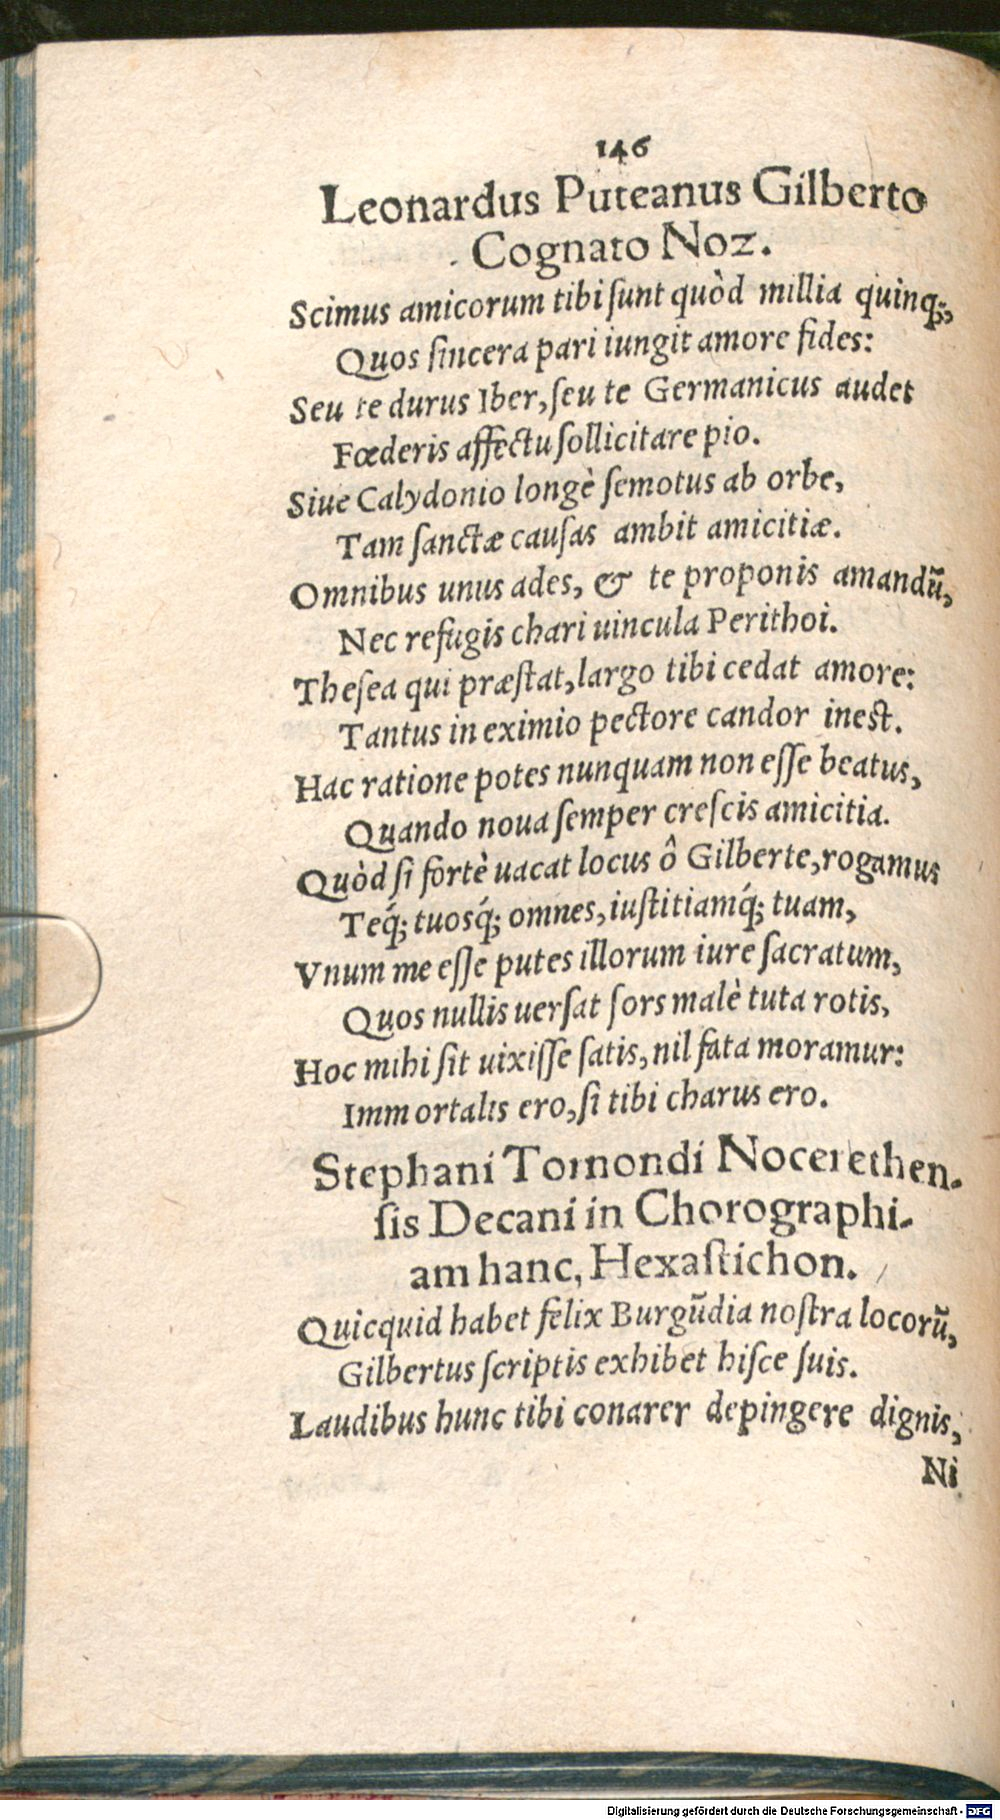 146
Leonardus Puteanus Gilberto
Cognato Noz.
Scimus amicorum tibi ſunt quòd millia quinq;,
Quos ſincera pari iungit amore fides:
Seu te durus Iber, ſeu te Germanicus audet
Fœderis affectu ſollicitare pio.
Siue Calydonio longè ſemotus ab orbe,
Tam ſanctæ cauſas ambit amicitiæ.
Omnibus unus ades, & te proponis amandũ,
Nec refugis chari uincula Perithoi.
Theſea qui præſtat, largo tibi cedat amore:
Tantus in eximio pectore candor ineſt.
Hac ratione potes nunquam non eſſe beatus,
Quando noua ſemper creſcis amicitia.
Quòd ſi fortè uacat locus ô Gilberte, rogamus
Teq́; tuosq́; omnes, iuſtitiamq́; tuam,
Vnum me eſſe putes illorum iure ſacratum,
Quos nullis uerſat ſors malè tuta rotis,
Hoc mihi ſit uixiſſe ſatis, nil fata moramur:
Immortalis ero, ſi tibi charus ero.
Stephani Tornondi Nocerethen-
ſis Decani in Chorographi-
am hanc, Hexaſtichon.
Quicquid habet felix Burgũdia noſtra locorũ,
Gilbertus ſcriptis exhibet hiſce ſuis.
Laudibus hunc tibi conarer depingere dignis,
Ni
Digitalisierung gefördert durch die Deutsche Forschungsgemeinschaft - DFG